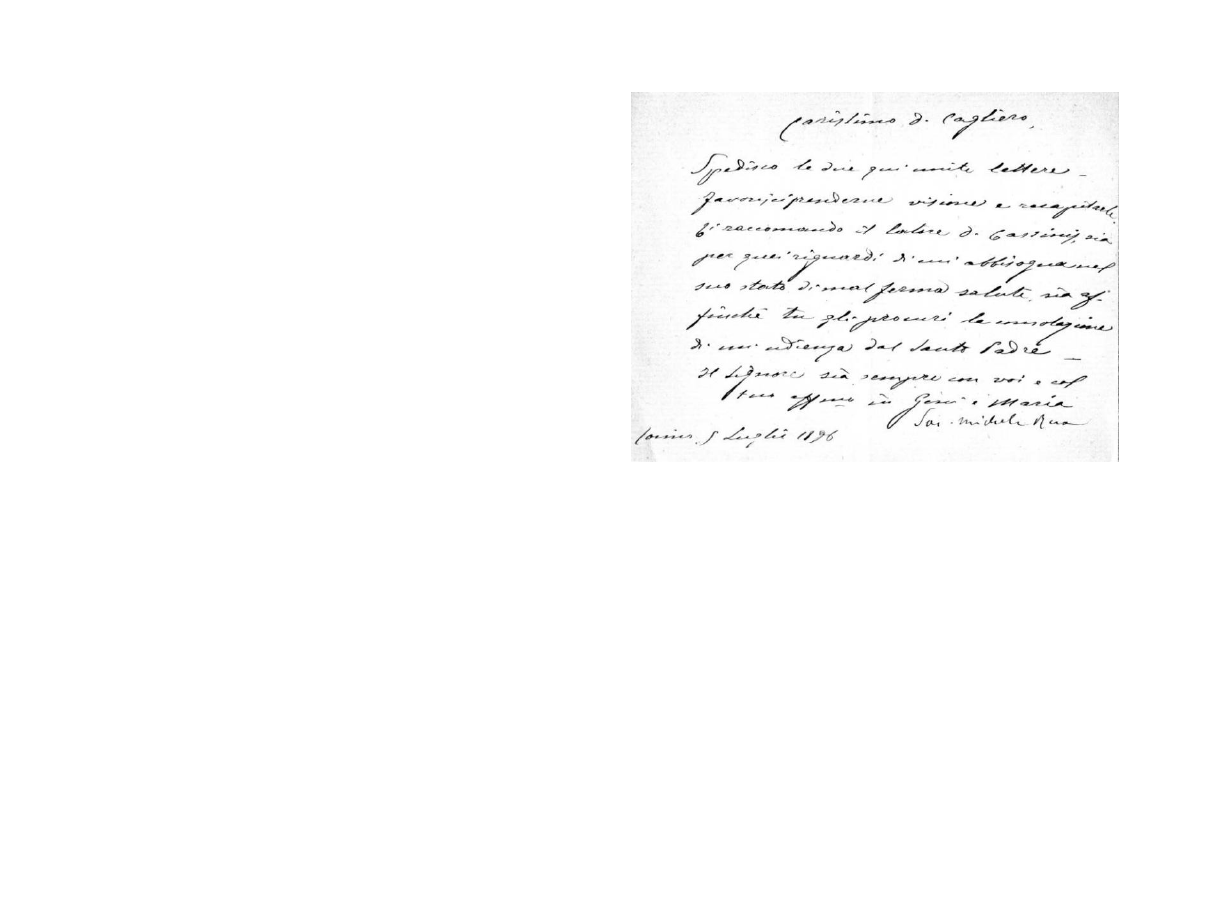 Carissimo D. Cagliero,
Spedisco le due qui unite lettere –
favorisci prenderne visione e recapitarle.
Ti raccomando il latore D. Cassinis, sia
per quei riguardi di cui abbisogna nel
suo stato di mal ferma salute, sia af-
finchè tu gli procuri la consolazione
di un' udienza dal Santo Padre –
Il Signore sia sempre con voi e col
tuo affmo in Gesù e Maria
Sac. Michele Rua
Torino, 5 Luglio 1896